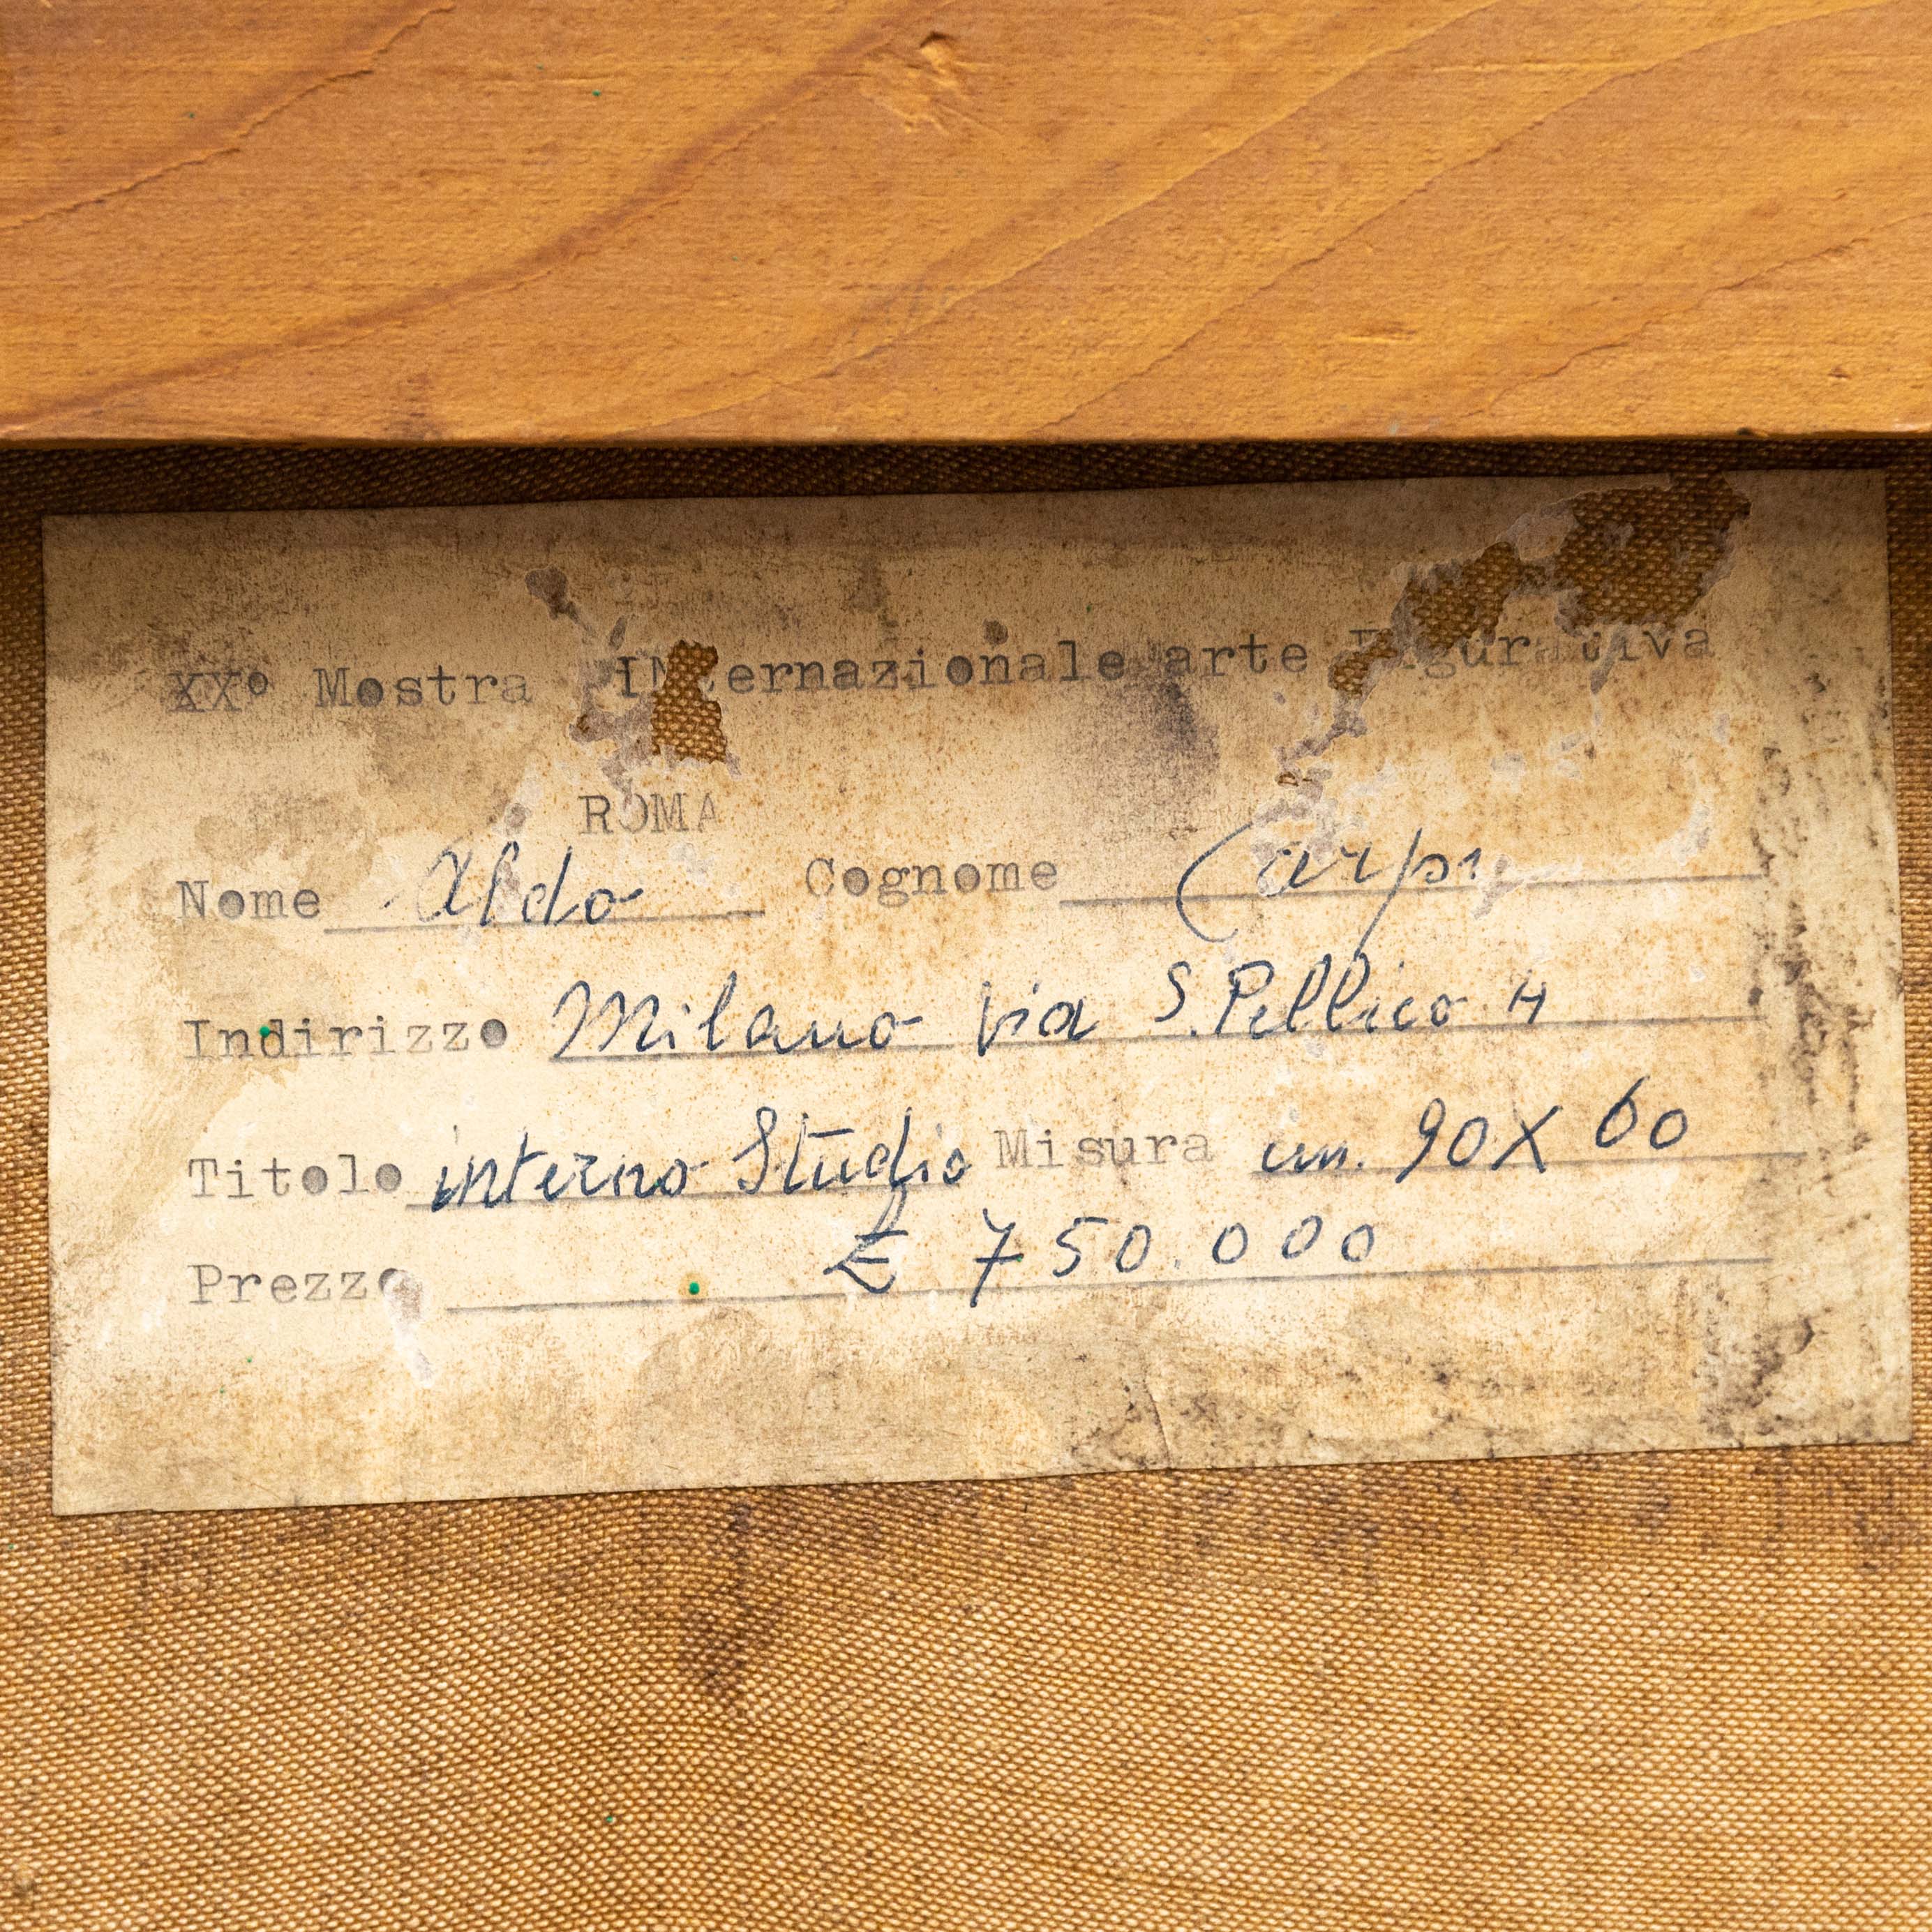 XXº Mostra INternazionale arte Figurativa
ROMA
Nome Aldo Cognome Carpi
Indirizzo Milano Via S. Pellico 4
Titolo interno Studio Misura cm. 90 X 60
Prezzo £ 750.000